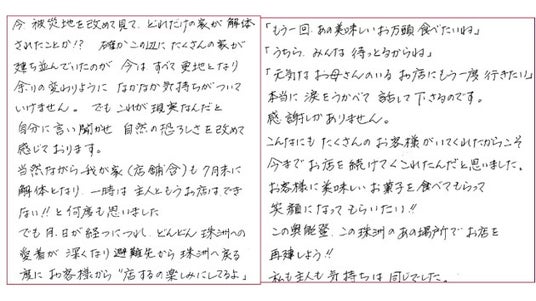 今、被災地を改めて見て、どれだけの家が解体
されたことか!? 確かこの辺にたくさんの家が
建ち並んでいたのが 今は すべて更地となり
余りの変わりように なかなか気持ちがついて
いけません。でもこれが現実なんだと
自分に言い聞かせ 自然の恐ろしさを改めて
感じております。
当然ながら我が家(店舗含)も7月末に
解体となり、一時は主人ともうお店はでき
ない!!と何度も思いました
でも月、日が経つにつれ、どんどん珠洲への
愛着が深くなり 避難先から珠洲へ戻る
度にお客様から"店するの楽しみにしてるよ"
「もう一回、あの美味しいお万頭食べたいね」
「うちら、みんな待っとるからね」
「元気なお母さんのいるお店にもう一度行きたい」
本当に涙をうかべて 話して下さるのです。
感謝しかありません。
こんなにもたくさんのお客様がいてくれたからこそ
今までお店を続けてくれたんだと思いました。
お客様に美味しいお菓子を食べてもらって
笑顔になってもらいたい!!
この奥能登、この珠洲のあの場所でお店を
再建しよう!!
私も主人も気持ちは同じでした。